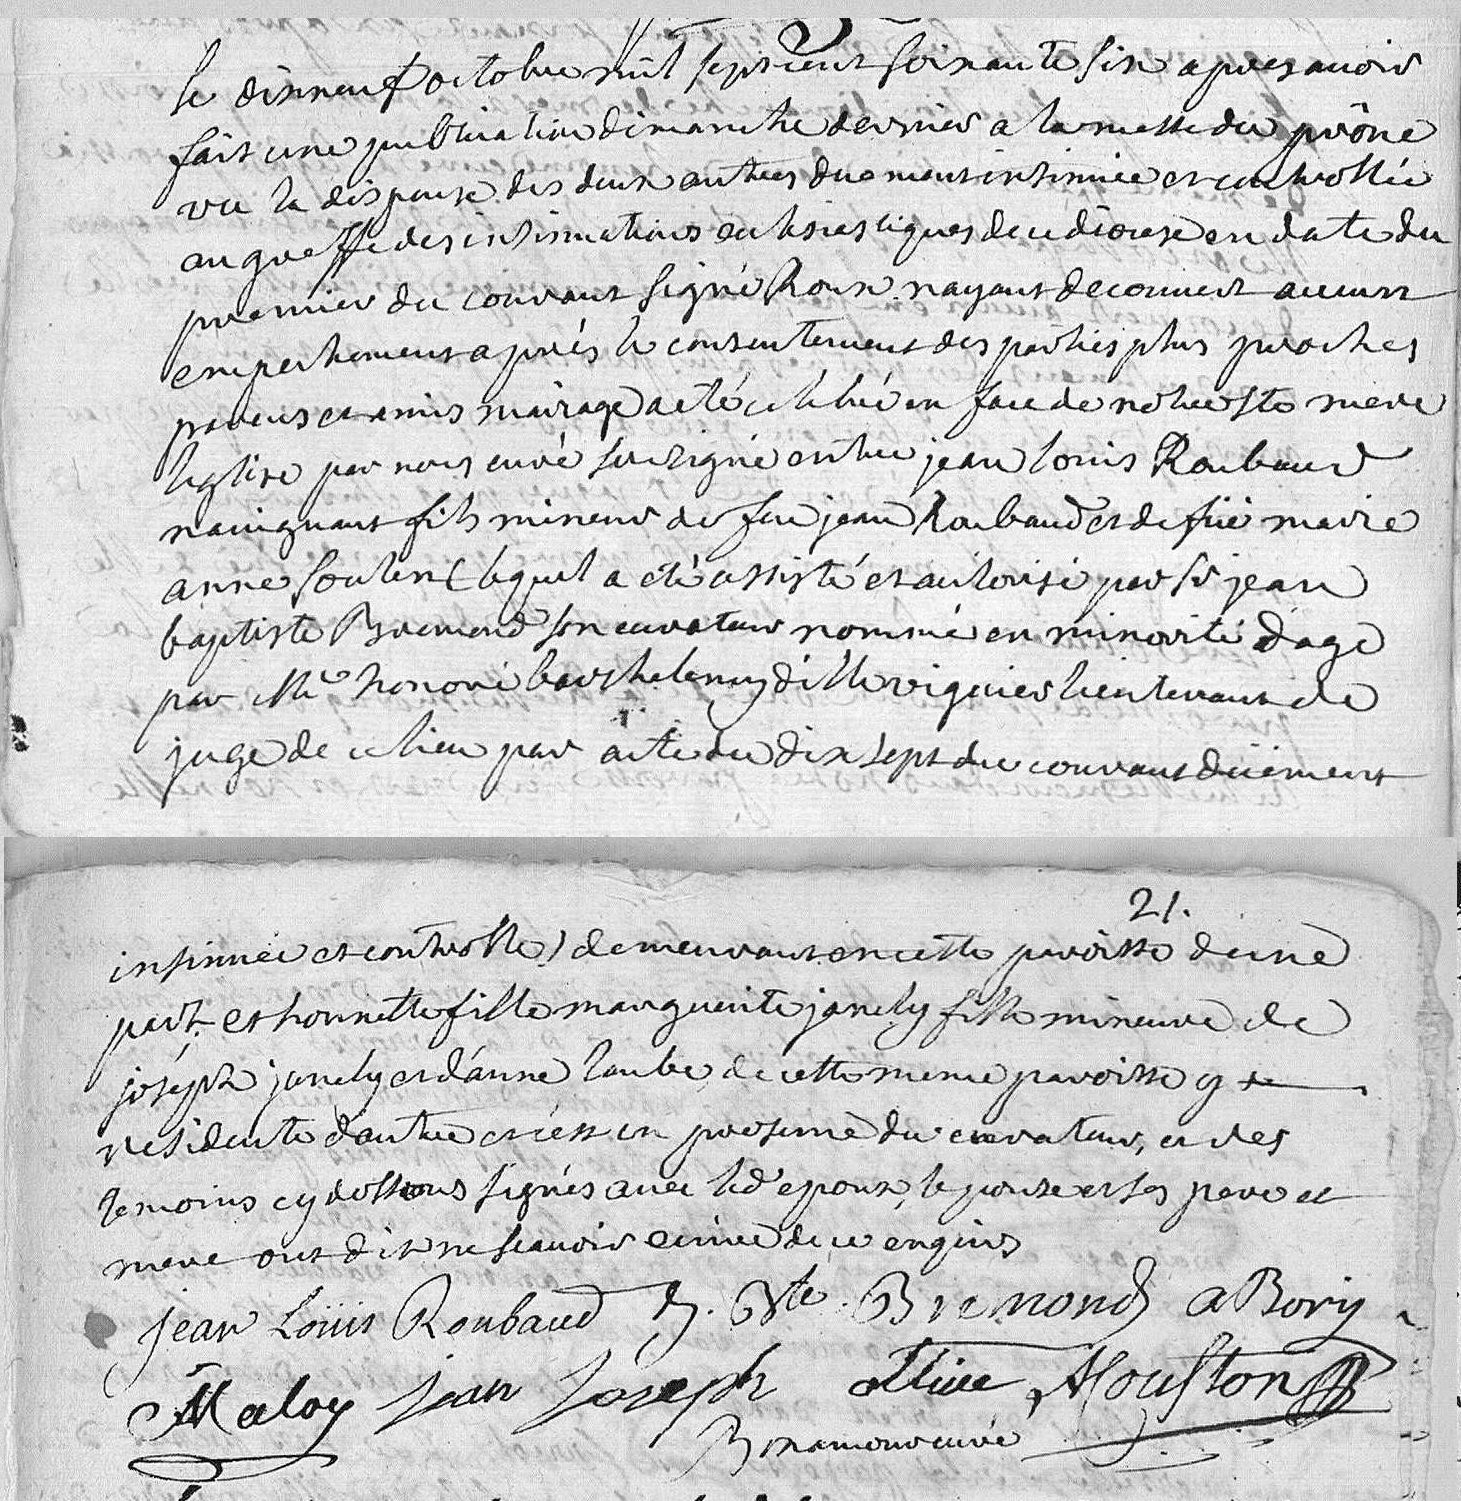 le dixneuf octobre mil sept cent soixante six apres avoir
fait une publication dimanche dernier a la messe du prône
vu la dispense des deux autres duement insinuée et controllée
au greffe des insinuations eclesiastiques de ce diocese en date du
premier du courant signé Roux nayant decouvert aucun
empechement après le consentement des parties plus proches
parens et amis mairage a eté celebré en face de notre ste mere
leglise par nous curé soussigné entre jean louis Roubaud
navigant fils mineur de feu jean Roubaud et de füe marie
anne (lequel a eté assisté et autorisé par sr jean
baptiste Bremond son curateur nommé en minorité d'age
par Me honoré barthelemy d'ille viguier lieutenant de
juge de ce lieu par acte du dix sept du courant düement
21.
insinuée et controllé) demeurant en cette paroisse d'une
part et honnette fille marguerite janely fille mineure de
joséph janely et d'anne laube de cette meme paroisse y
residente d'autre et c'est en presence du curateur, et des
temoins cy dessous signés avec led epoux, lepouse et ses pere et
mere ont dit ne scavoir ecrire de ce enquis
jean Loüis Roubaud J. Bte Bremond a Bory
Maloy jean Joseph ollive, Mouston
Bonamour curé